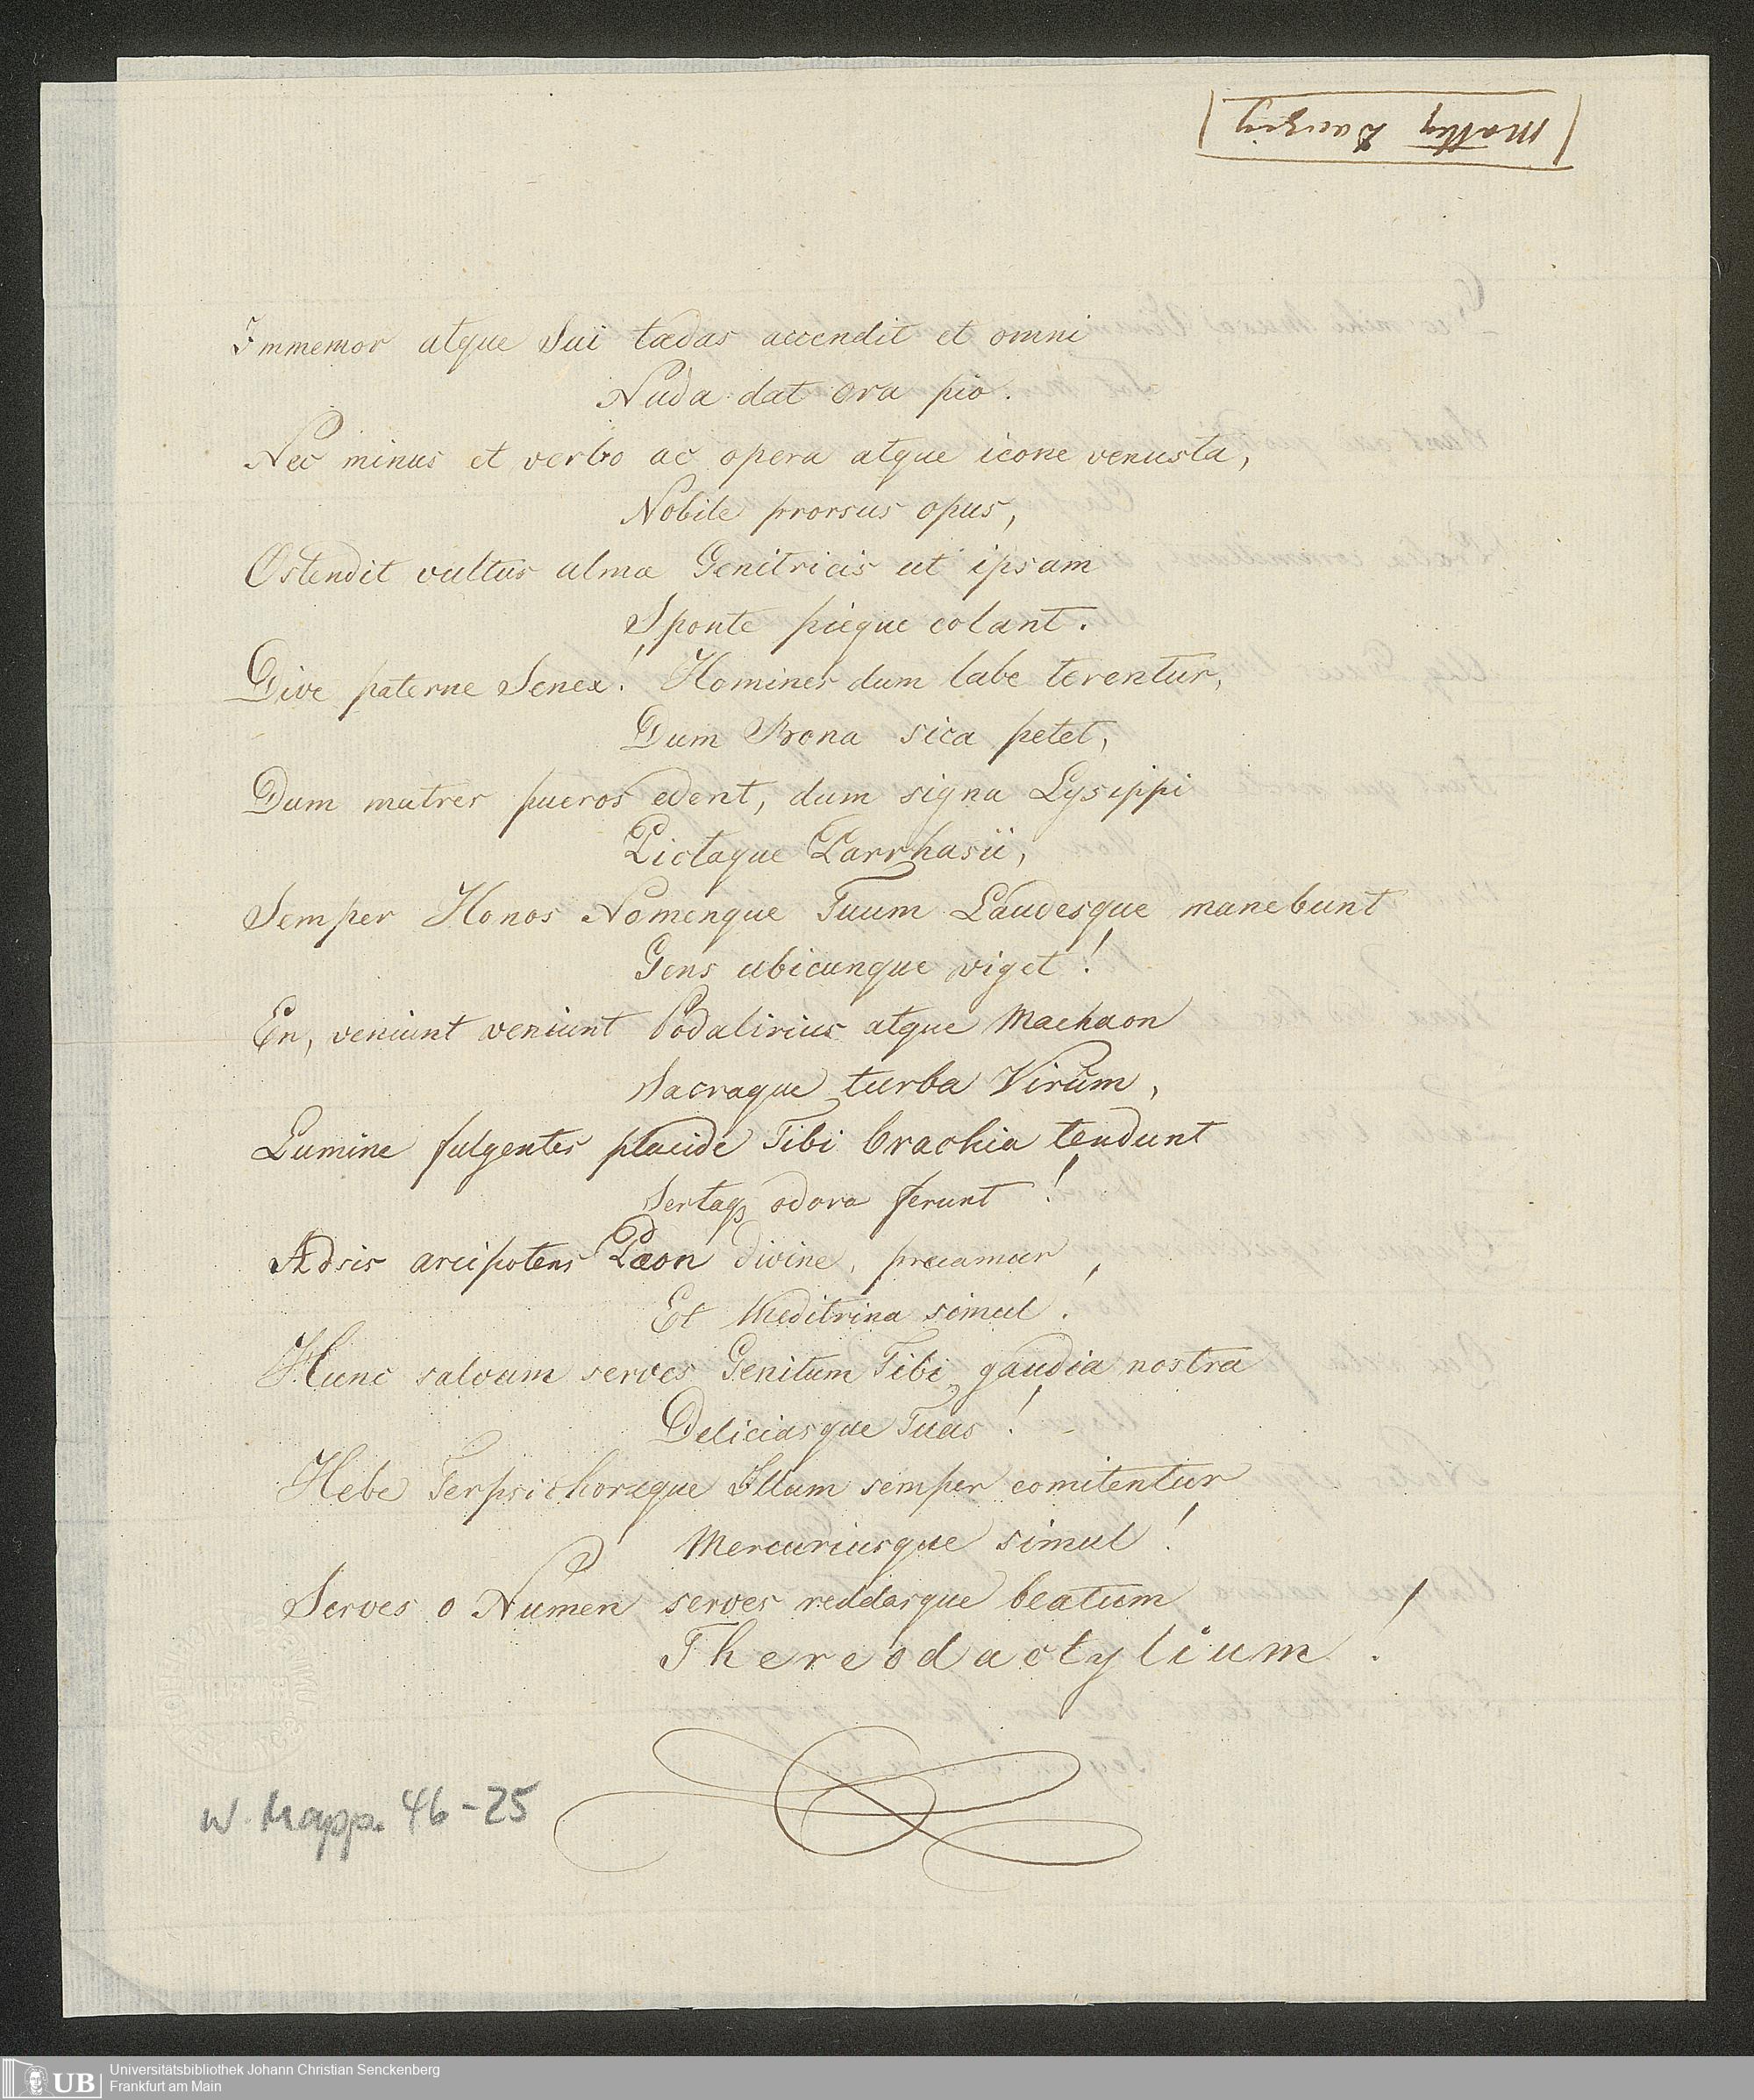 Matthy Danzig
Immemor atque Sui tædas accendit et omni
Nuda dat ora pio.
Nec minus et verbo ac opera atque icone venusta,
Nobile prorsus opus,
Ostendit vultus almæ Genitricis ut ipsam
Sponte pieque colant.
Dive paterne Senex! Homines dum labe terentur,
Dum Bona sica petet,
Dum matres pueros edent, dum signa Lysippi
Pictaque Parrhasii,
Semper Honos Nomenque Tuum Laudesque manebunt
Gens ubicunque viget!
En, veniunt veniunt Podalirius atque Machaon
Sacraque turba Virûm,
Lumine fulgentes placide Tibi brachia tendunt
Sertaq₃ odora ferunt!
Adsis arcipotens Pæon divine, precamur,
Et Meditrina simul!
Hunc salvum serves Genitum Tibi, gaudia nostra
Deliciasque Tuas!
Hebe Terpsichoreque Illum semper comitentur
Mercuriusque simul!
Serves o Numen serves reddasque beatum
Thereodactylium!
W. Mapp. 46-25
UB
Universitätsbibliothek Johann Christian Senckenberg
Frankfurt am Main